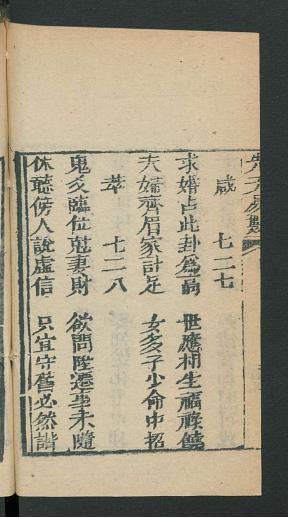 咸　七二七
求婚占此卦為前　世應相生福祿饒
夫婦齊眉家計足　女多子少命中招
萃　七二八
鬼爻臨位尅妻財　欲問陞遷事未隨
休聽傍人說虛信　只宜守舊必然諧